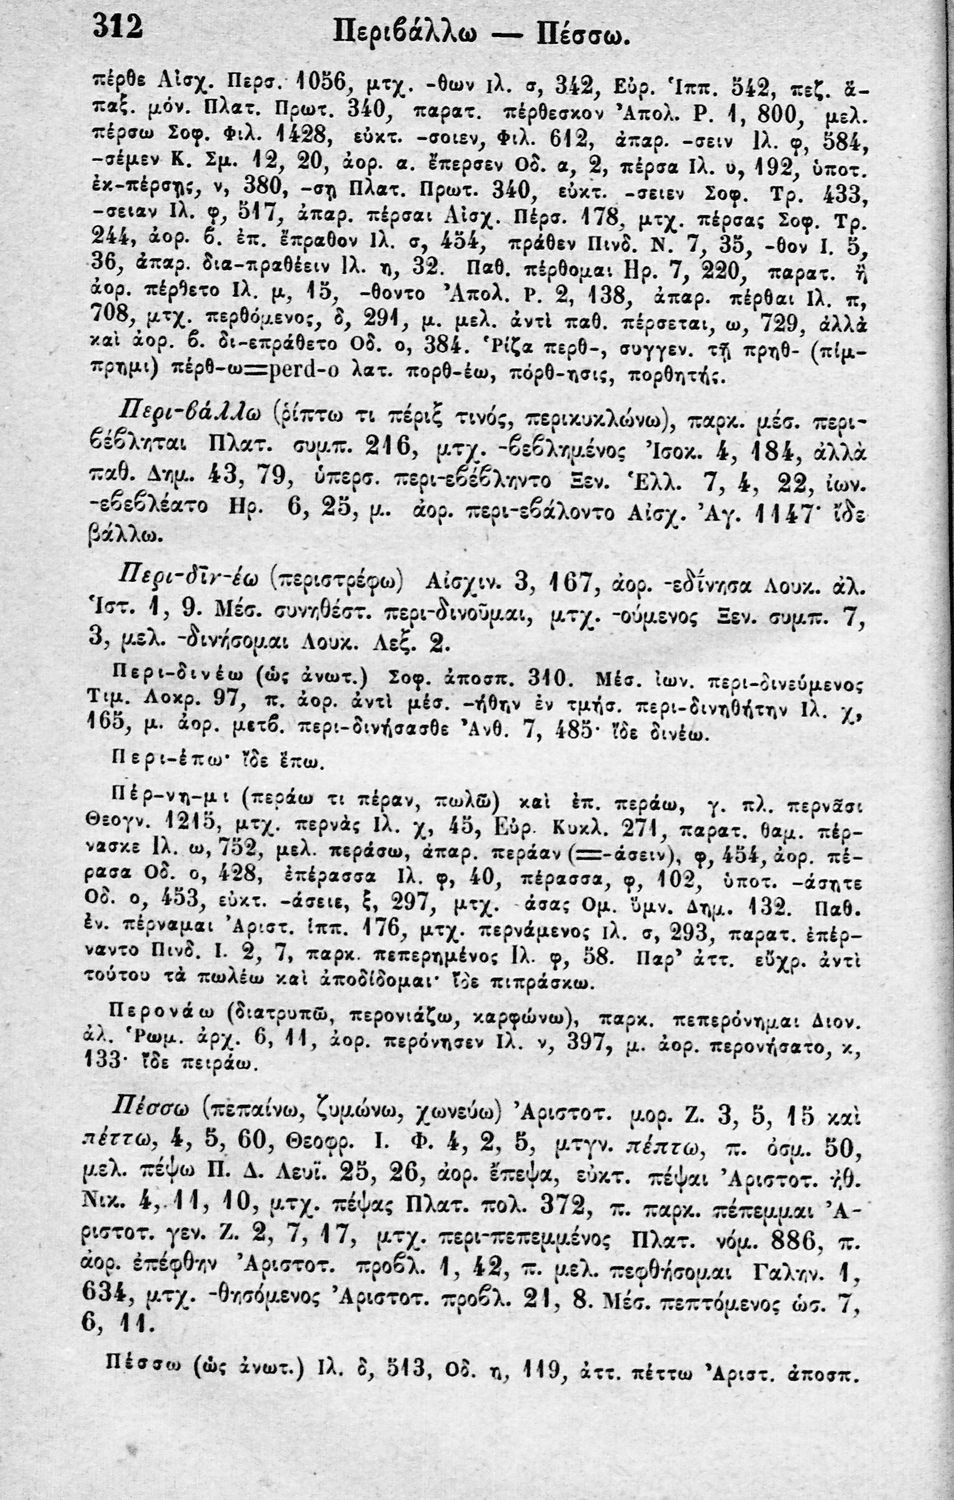 312
Περιβάλλω — Πέσσω.
πέρθε Αἰσχ. Περσ. 1056, μτχ. -θων Ιλ. σ, 342, Εὐρ. Ἱππ. 542, πεζ. ἅ-
παξ. μόν. Πλατ. Πρωτ. 340, παρατ. πέρθεσκον Ἀπολ. Ρ. 1, 800, μελ.
πέρσω Σοφ. Φιλ. 1428, εὐκτ. -σοιεν, Φιλ. 612, ἀπαρ. -σειν Ιλ. φ, 584,
-σέμεν Κ. Σμ. 12, 20, ἀορ. α. ἔπερσεν Οδ. α, 2, πέρσα Ιλ. υ, 192, ὑποτ.
ἐκ-πέρσῃς, ν, 380, -σῃ Πλατ. Πρωτ. 340, εὐκτ. -σειεν Σοφ. Τρ. 433,
-σειαν Ιλ. φ, 517, ἀπαρ. πέρσαι Αἰσχ. Πέρσ. 178, μτχ. πέρσας Σοφ. Τρ.
244, ἀορ. β. ἐπ. ἔπραθον Ιλ. σ, 454, πράθεν Πινδ. Ν. 7, 35, -θον Ι. 5,
36, ἀπαρ. δια-πραθέειν Ιλ. η, 32. Παθ. πέρθομαι Ηρ. 7, 220, παρατ. ἢ
ἀορ. πέρθετο Ιλ. μ, 15, -θοντο Ἀπολ. Ρ. 2, 138, ἀπαρ. πέρθαι Ιλ. π,
708, μτχ. περθόμενος, δ, 291, μ. μελ. ἀντὶ παθ. πέρσεται, ω, 729, ἀλλὰ
καὶ ἀορ. β. δι-επράθετο Οδ. ο, 384. Ῥίζα περθ-, συγγεν. τῇ πρηθ- (πίμ-
πρημι) πέρθ-ω=perd-o λατ. πορθ-έω, πόρθ-ησις, πορθητής.
Περι-βάλλω (ῥίπτω τι πέριξ τινός, περικυκλώνω), παρκ. μέσ. περι-
βέβληται Πλατ. συμπ. 216, μτχ. -βεβλημένος Ἰσοκ. 4, 184, ἀλλὰ
παθ. Δημ. 43, 79, ὑπερσ. περι-εβέβληντο Ξεν. Ἑλλ. 7, 4, 22, ἰων.
-εβεβλέατο Ηρ. 6, 25, μ. ἀορ. περι-εβάλοντο Αἰσχ. Ἀγ. 1147· ἴδε
βάλλω.
Περι-δῑν-έω (περιστρέφω) Αἰσχιν. 3, 167, ἀορ. -εδίνησα Λουκ. ἀλ.
Ἱστ. 1, 9. Μέσ. συνηθέστ. περι-δινοῦμαι, μτχ. -ούμενος Ξεν. συμπ. 7,
3, μελ. -δινήσομαι Λουκ. Λεξ. 2.
Περι-δινέω (ὡς ἀνωτ.) Σοφ. ἀποσπ. 310. Μέσ. ἰων. περι-δινεύμενος
Τιμ. Λοκρ. 97, π. ἀορ. ἀντὶ μέσ. -ήθην ἐν τμήσ. περι-δινηθήτην Ιλ. χ,
165, μ. ἀορ. μετβ. περι-δινήσασθε Ἀνθ. 7, 485· ἴδε δινέω.
Περι-έπω· ἴδε ἕπω.
Πέρ-νη-μι (περάω τι πέραν, πωλῶ) καὶ ἐπ. περάω, γ. πλ. περνᾶσι
Θεογν. 1215, μτχ. περνὰς Ιλ. χ, 45, Εὐρ. Κυκλ. 271, παρατ. θαμ. πέρ-
νασκε Ιλ. ω, 752, μελ. περάσω, ἀπαρ. περάαν (=-άσειν), φ, 454, ἀορ. πέ-
ρασα Οδ. ο, 428, ἐπέρασσα Ιλ. φ, 40, πέρασσα, φ, 102, ὑποτ. -άσητε
Οδ. ο, 453, εὐκτ. -άσειε, ξ, 297, μτχ. -άσας Ομ. ὕμν. Δημ. 132. Παθ.
ἐν. πέρναμαι Ἀριστ. ἱππ. 176, μτχ. περνάμενος Ιλ. σ, 293, παρατ. ἐπέρ-
ναντο Πινδ. Ι. 2, 7, παρκ. πεπερημένος Ιλ. φ, 58. Παρ' ἀττ. εὔχρ. ἀντὶ
τούτου τὰ πωλέω καὶ ἀποδίδομαι· ἴδε πιπράσκω.
Περονάω (διατρυπῶ, περονιάζω, καρφώνω), παρκ. πεπερόνημαι Διον.
ἀλ. Ῥωμ. ἀρχ. 6, 11, ἀορ. περόνησεν Ιλ. ν, 397, μ. ἀορ. περονήσατο, κ,
133· ἴδε πειράω.
Πέσσω (πεπαίνω, ζυμώνω, χωνεύω) Ἀριστοτ. μορ. Ζ. 3, 5, 15 καὶ
πέττω, 4, 5, 60, Θεοφρ. Ι. Φ. 4, 2, 5, μτγν. πέπτω, π. ὀσμ. 50,
μελ. πέψω Π. Δ. Λευϊ. 25, 26, ἀορ. ἔπεψα, εὐκτ. πέψαι Ἀριστοτ. ἠθ.
Νικ. 4, 11, 10, μτχ. πέψας Πλατ. πολ. 372, π. παρκ. πέπεμμαι Ἀ-
ριστοτ. γεν. Ζ. 2, 7, 17, μτχ. περι-πεπεμμένος Πλατ. νόμ. 886, π.
ἀορ. ἐπέφθην Ἀριστοτ. προβλ. 1, 42, π. μελ. πεφθήσομαι Γαλην. 1,
634, μτχ. -θησόμενος Ἀριστοτ. προβλ. 21, 8. Μέσ. πεπτόμενος ὡσ. 7,
6, 11.
Πέσσω (ὡς ἀνωτ.) Ιλ. δ, 513, Οδ. η, 119, ἀττ. πέττω Ἀριστ. ἀποσπ.